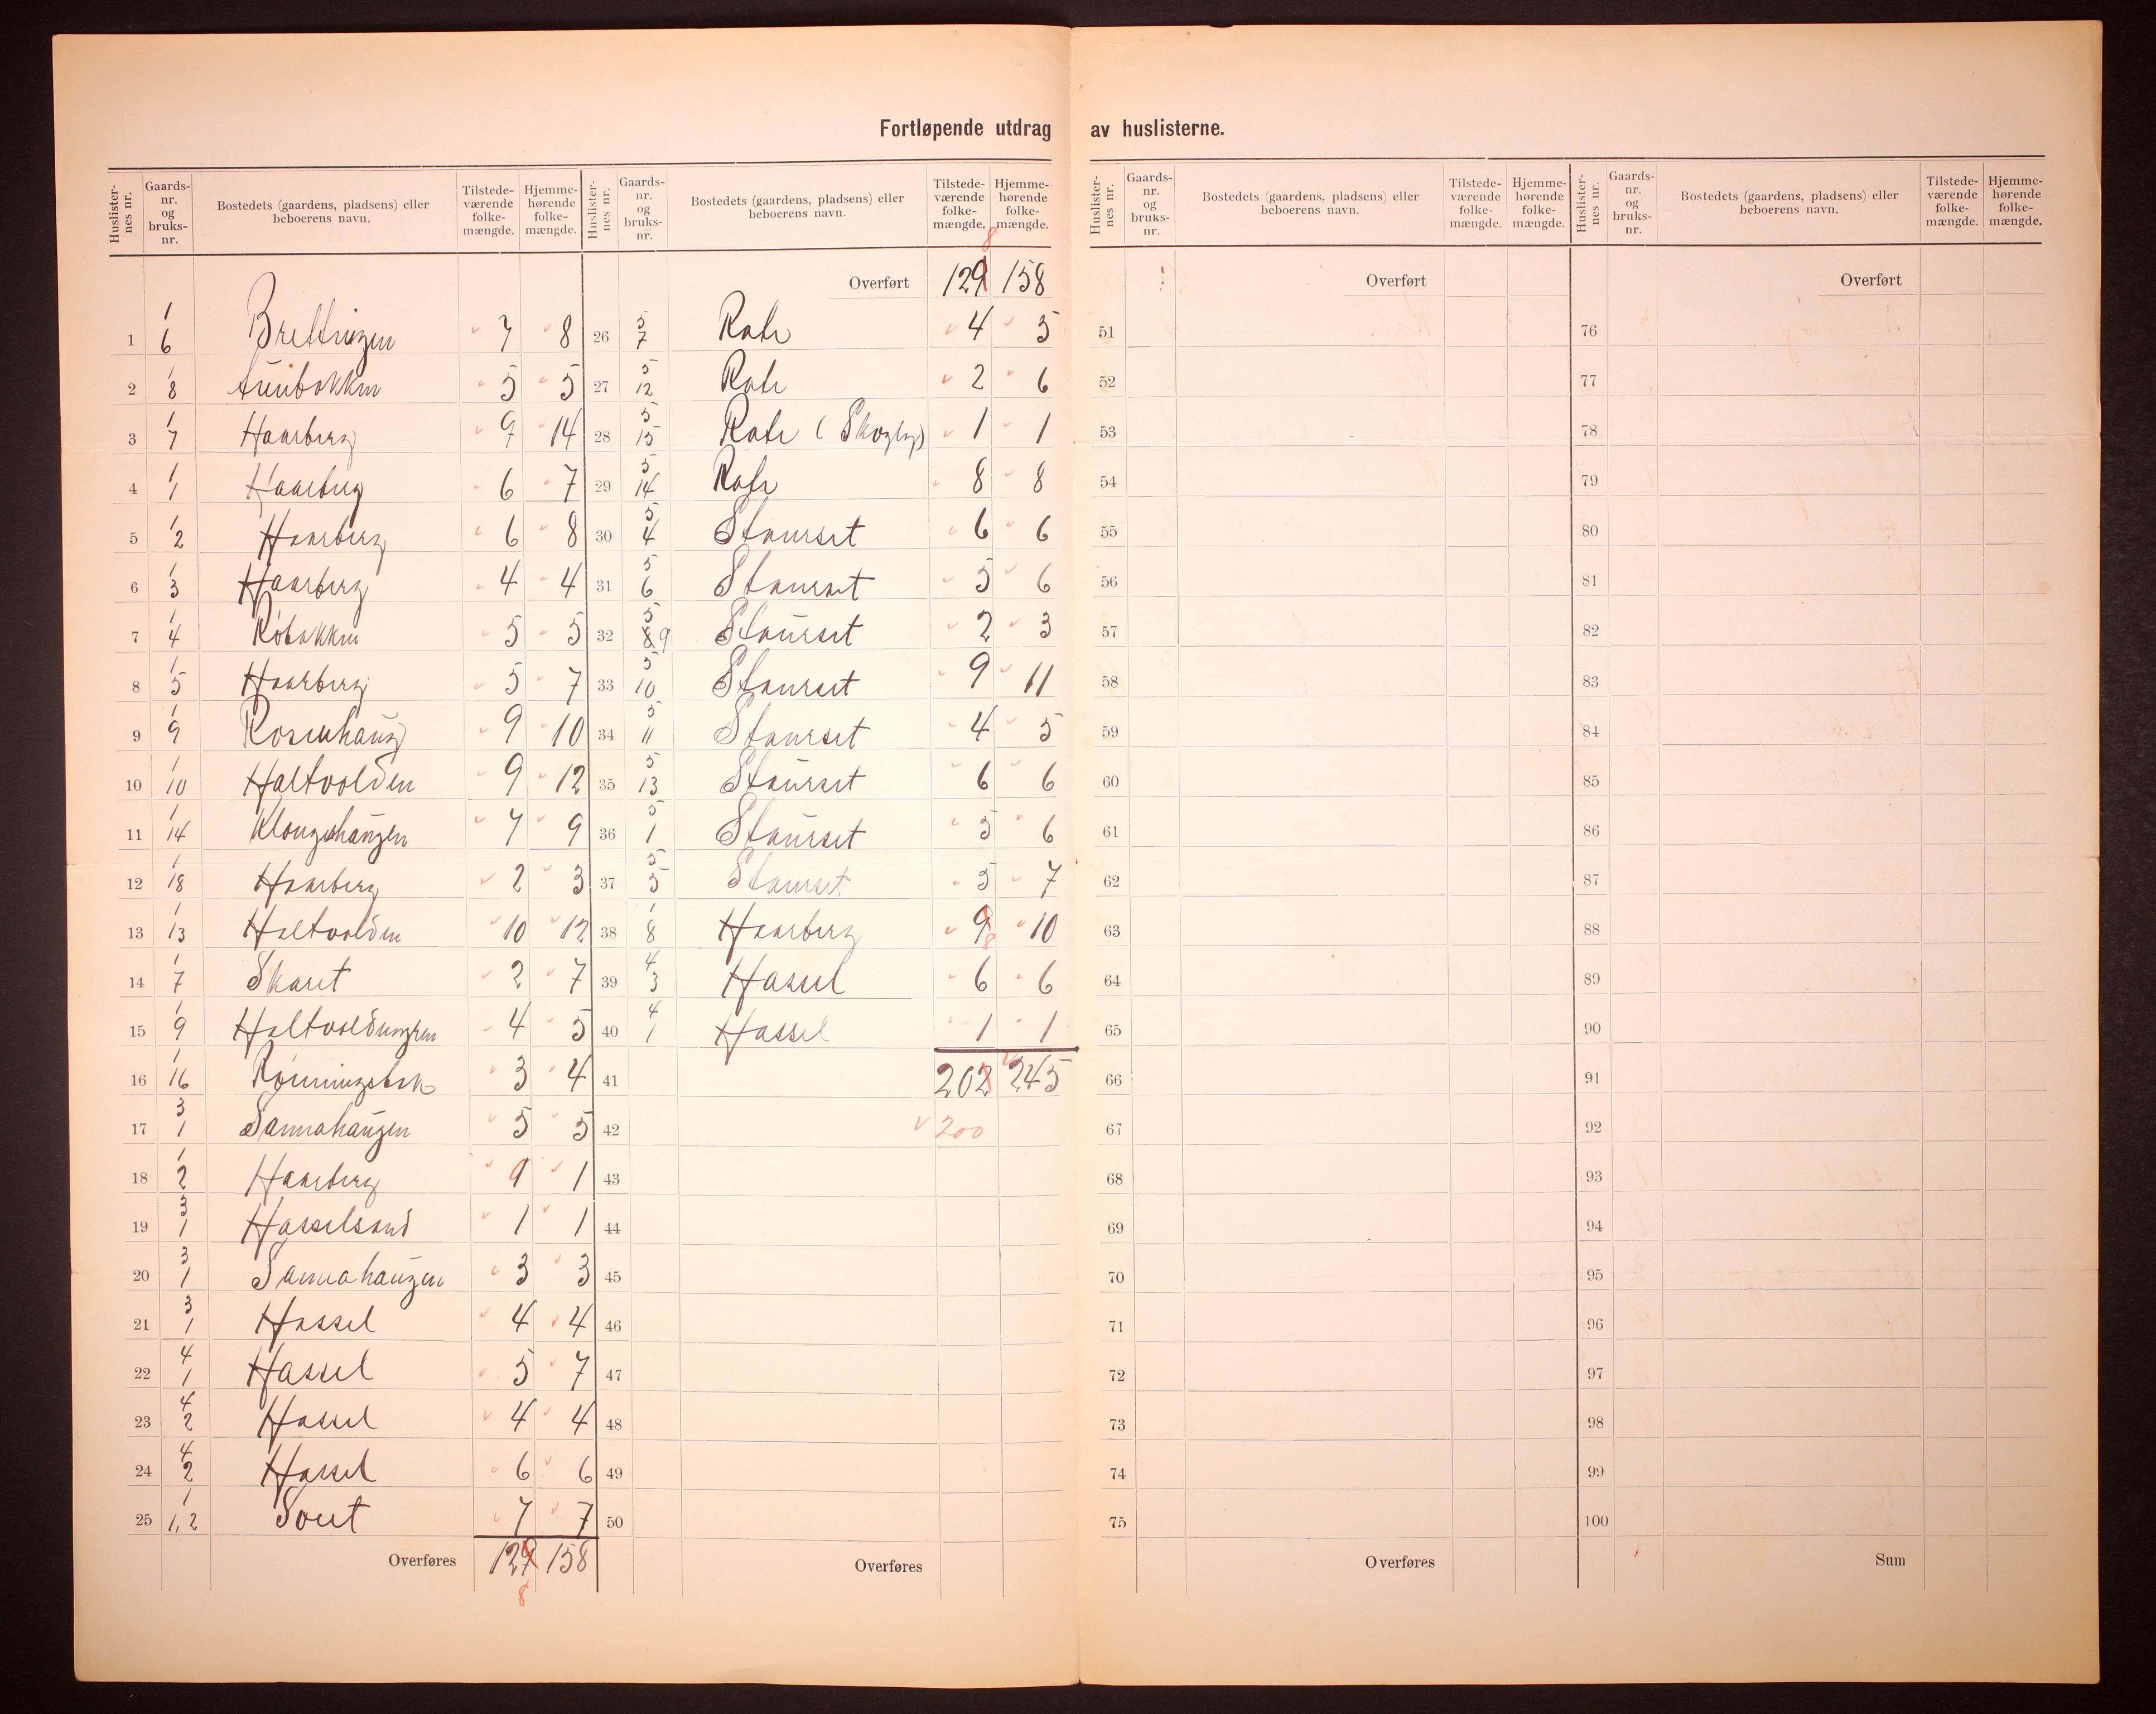 Fortløpende utdrag av huslisterne.
Huslisternes nr. Gaards-nr. og bruks-nr. Bostedets (gaardens, pladsens) eller beboerens navn. Tilstedeværende folkemængde. Hjemmehørende folkemængde.
1 1 6 Brettingen 7 8
2 1 8 5 5
3 1 7 Haarberg 9 14
4 1 1 Haarberg 6 7
5 1 2 Haarberg 6 8
6 1 3 Haarberg 4 4
7 1 4 Røbakken 5 5
8 1 5 Haarberg 5 7
9 1 9 Rosenhaug 9 10
10 1 10 Haltvolden 9 12
11 1 14 Klungerhaugen 7 9
12 1 18 Haarberg 2 3
13 1 13 Haltvolden 10 12
14 1 7 Skaret 2 7
15 1 9 4 5
16 1 16 Rønningsbak 3 4
17 3 1 Sannahaugen 5 5
18 1 2 Haarberg 1
19 3 1 Hasselsand 1 1
20 3 1 Sannahaugen 3 3
21 3 1 Hassel 4 4
22 4 1 Hassel 5 7
23 4 2 Hassel 4 4
24 4 2 Hassel 6 6
25 1 1,2 7 7
Overføres 129 158
8
Huslisternes nr. Gaards-nr. og bruks-nr. Bostedets (gaardens, pladsens) eller beboerens navn. Tilstedeværende folkemængde. Hjemmehørende folkemængde.
8
Overført 129 158
26 5 7 Rate 4 5
27 5 12 Rate 2 6
28 5 15 Rate (Skogly) 1 1
29 5 14 Rate 8 8
30 5 4 Staurset 6 6
31 5 6 Staurset 5 6
32 5 8 9 Staurset 2 3
33 5 10 Staurset 9 11
34 5 11 Staurset 4 5
35 5 13 Staurset 6 6
36 5 1 Staurset 5 6
37 5 5 Staurset 5 7
38 1 8 Haarberg 9 8 10
39 4 3 Hassel 6 6
40 4 1 Hassel 1 1
41 202 245
42 200
43
44
45
46
47
48
49
50
Overføres
Huslisternes nr. Gaards-nr. og bruks-nr. Bostedets (gaardens, pladsens) eller beboerens navn. Tilstedeværende folkemængde. Hjemmehørende folkemængde.
Overført
51
52
53
54
55
56
57
58
59
60
61
62
63
64
65
66
67
68
69
70
71
72
73
74
75
Overføres
Huslisternes nr. Gaards-nr. og bruks-nr. Bostedets (gaardens, pladsens) eller beboerens navn. Tilstedeværende folkemængde. Hjemmehørende folkemængde.
Overført
76
77
78
79
80
81
82
83
84
85
86
87
88
89
90
91
92
93
94
95
96
97
98
99
100
Sum